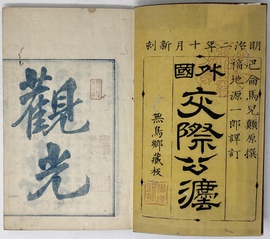 明治二年十月新刻
巴侖馬兒顛原撰
福地源一郎譯訂
外國
交際公法
無鳥鄉藏板
觀光